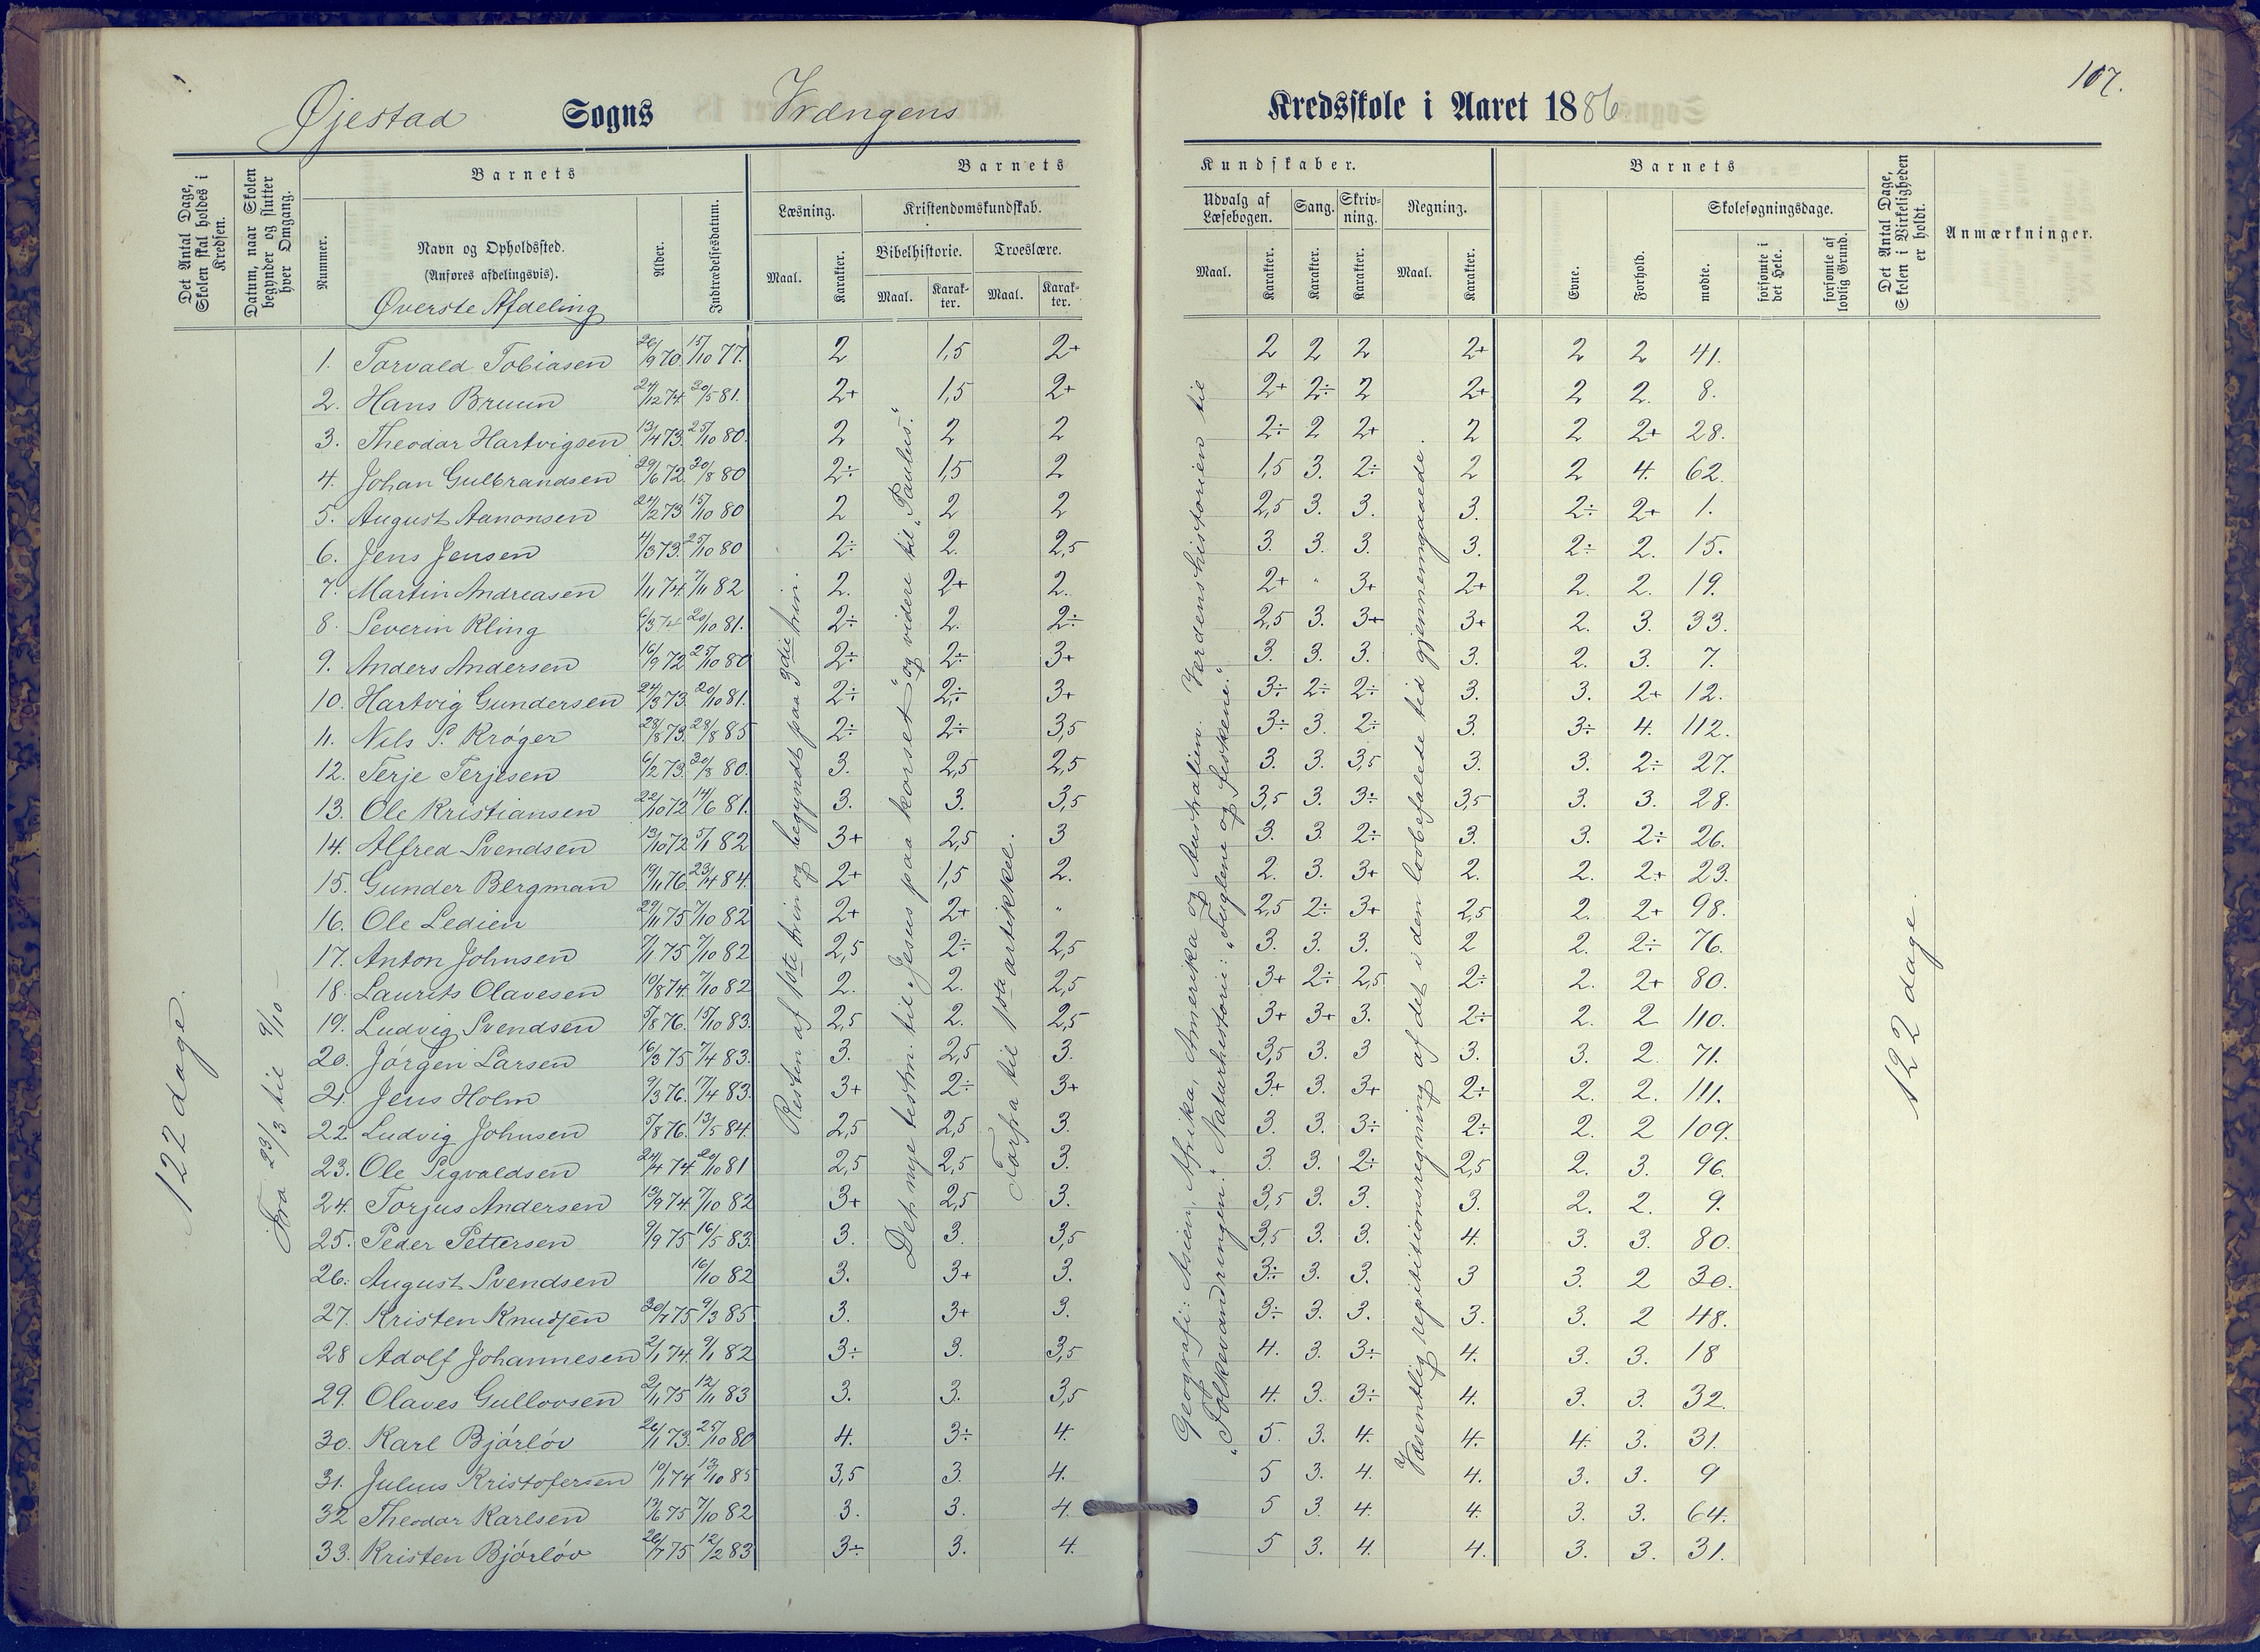 107.
Øjestad Sogns Vrængens Kredsskole i Aaret 1886
Det Antal Dage, Skolen skal holdes i Kredsen.
Datum, naar Skolen begynder og slutter hver Omgang.
Nummer.
Barnets
Navn og Opholdssted.
(Anføres afdelingsvis).
Øverste Afdeling
Alder.
Indtrædelsesdatum.
Barnets Kundskaber.
Læsning.
Maal. Karakter.
Kristendomskundskab.
Bibelhistorie. Troeslære.
Maal. Karakter. Maal. Karakter.
Udvalg af Læsebogen.
Maal. Karakter.
Sang.
Karakter.
Skrivning.
Karakter.
Regning.
Maal. Karakter.
Barnets
Evne. Forhold.
Skolesøgningsdage.
mødte. forsømte i det Hele. forsømte af lovlig Grund.
Det Antal Dage, Skolen i Virkeligheden er holdt.
Anmærkninger.
122 dage.
Fra 23/3 til 9/10 —
Resten af 1ste trin og begyndt paa 3die trin.
Det nye testm. til „Jesus paa korset" og videre til „Paulus".
Forfra til 1ste artikkel.
Geografi: Asien, Afrika, Amerika og Australien. Verdenshistorien til
„Folkevandringen." Naturhistorie: „Fuglene og fiskene."
Væsentlig repititionsregning af det i den lovbefalede tid gjennemgaaede.
122 dage.
1. Torvald Tobiasen 26/9 70. 15/10 77. 2 1,5 2+ 2 2 2 2+ 2 2 41.
2. Hans Bruun 24/12 74. 20/5 81. 2+ 1,5 2+ 2+ 2÷ 2 2+ 2 2. 8.
3. Theodor Hartvigsen 13/4 73. 25/10 80. 2 2 2 2÷ 2 2+ 2 2 2+ 28.
4. Johan Gulbrandsen 29/6 72. 20/8 80 2÷ 1,5 2 1,5 3. 2÷ 2 2 4. 62.
5. August Aanonsen 24/2 73 15/10 80 2 2 2 2,5 3. 3. 3. 2÷ 2+ 1.
6. Jens Jensen 4/3 73. 25/10 80 2÷ 2. 2,5 3. 3. 3. 3. 2÷ 2. 15.
7. Martin Andreasen 1/11 74. 7/11 82 2. 2+ 2. 2+ " 3+ 2+ 2. 2. 19.
8. Severin Kling 6/3 74 20/10 81. 2÷ 2. 2÷ 2,5 3. 3+ 3+ 2. 3. 33.
9. Anders Andersen 16/9 72 25/10 80 2÷ 2÷ 3+ 3. 3. 3. 3. 2. 3. 7.
10. Hartvig Gundersen 24/3 73. 20/10 81. 2÷ 2÷ 3+ 3÷ 2÷ 2÷ 3. 3. 2+ 12.
11. Nils S. Krøger 28/8 73. 28/8 85 2÷ 2÷ 3,5 3÷ 3. 2÷ 3. 3÷ 4. 112.
12. Terje Terjesen 6/2 73. 20/8 80. 3. 2,5 2,5 3. 3. 3,5 3. 3. 2÷ 27.
13. Ole Kristiansen 22/10 72 14/6 81. 3. 3. 3,5 3,5 3. 3÷ 3,5 3. 3. 28.
14. Alfred Svendsen 13/10 72 5/1 82 3+ 2,5 3 3. 3 2÷ 3. 3. 2÷ 26.
15. Gunder Bergman 19/11 76 23/4 84. 2+ 1,5 2. 2. 3. 3+ 2. 2. 2+ 23.
16. Ole Ledien 29/11 75 7/10 82 2+ 2+ " 2,5 2÷ 3+ 2,5 2. 2+ 98.
17. Anton Johnsen 7/1 75 7/10 82 2,5 2÷ 2,5 3. 3. 3. 2 2. 2÷ 76.
18. Laurits Olavesen 10/8 74. 7/10 82 2. 2. 2,5 3+ 2÷ 2,5 2÷ 2. 2+ 80.
19. Ludvig Svendsen 5/8 76. 15/10 83. 2,5 2. 2,5 3+ 3+ 3. 2÷ 2. 2 110.
20. Jørgen Larsen 16/3 75 7/4 83. 3. 2,5 3. 3,5 3. 3 3. 3. 2. 71.
21. Jens Holm 9/3 76. 17/4 83. 3+ 2÷ 3+ 3+ 3. 3+ 2÷ 2. 2. 111.
22. Ludvig Johnsen 5/8 76. 13/5 84. 2,5 2,5 3. 3. 3. 3÷ 2÷ 2. 2 109.
23. Ole Sigvaldsen 24/4 74. 20/10 81 2,5 2,5 3. 3. 3. 2÷ 2,5 2. 3. 96.
24. Torjus Andersen 13/9 74. 7/10 82 3+ 2,5 3. 3,5 3. 3. 3. 2. 2. 9.
25. Peder Pettersen 9/9 75 16/5 83. 3. 3. 3,5 3,5 3. 3. 4. 3. 3. 80.
26. August Svendsen 16/10 82 3. 3+ 3. 3÷ 3. 3. 3 3. 2 30.
27. Kristen Knudsen 30/7 75 9/3 85 3. 3+ 3. 3÷ 3. 3. 3. 3. 2 48.
28 Adolf Johannesen 2/1 74. 9/1 82 3÷ 3. 3,5 4. 3. 3÷ 4. 3. 3. 18
29. Olaves Gullovsen 2/11 75 12/11 83 3. 3. 3,5 4. 3. 3÷ 4. 3. 3. 32.
30. Karl Bjørløv 26/1 73. 25/10 80 4. 3÷ 4. 5. 3. 4. 4. 4. 3. 31.
31. Julius Kristofersen 10/1 74 13/10 85 3,5 3. 4. 5 3. 4. 4. 3. 3. 9
32 Theodor Karlsen 13/6 75 7/10 82 3. 3. 4. 5 3. 4. 4. 3. 3. 64.
33. Kristen Bjørløv 26/7 75 12/2 83 3÷ 3. 4. 5 3. 4. 4. 3. 3. 31.